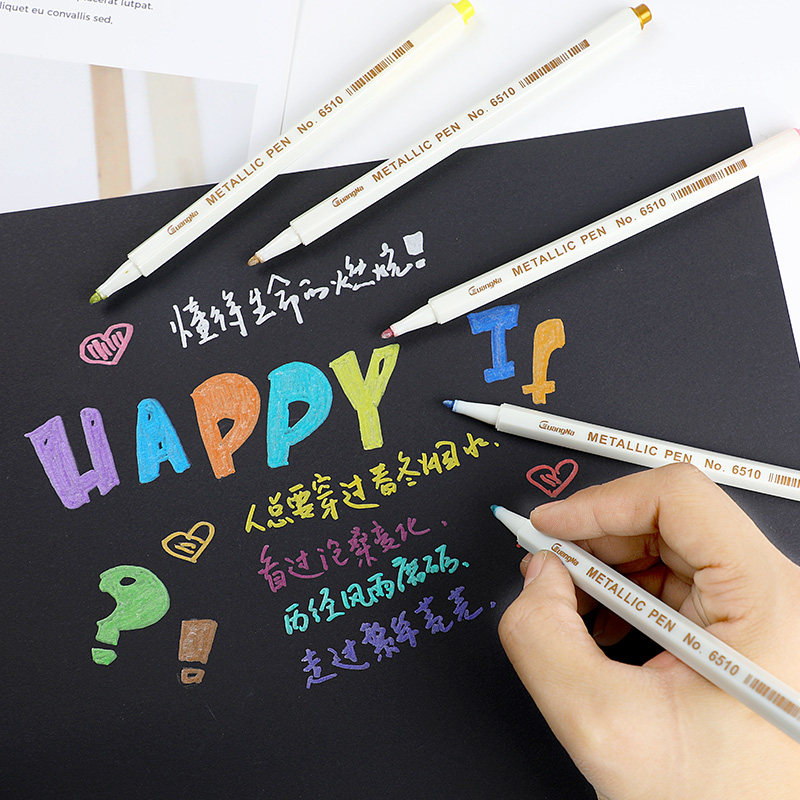 placerat lutpat.
liquet eu convallis sed.
METALLIC PEN No. 6510
GuangNa METALLIC PEN No. 6510
GuangNa METALLIC PEN No. 6510
GuangNa METALLIC PEN No. 6510
GuangNa METALLIC PEN No. 6510
懂得生命的燃烧!
HAPPY If
人总要穿过春冬烟水.
看过沧桑变化.
历经风雨磨砺、
走过繁华荒芜.
?!